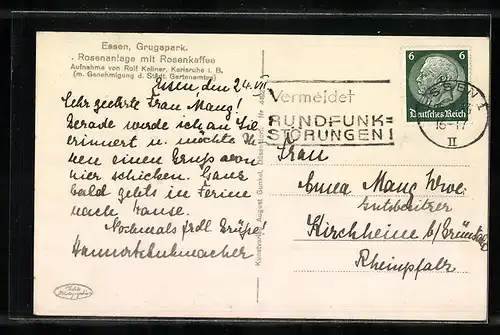 Essen, Grugapark.
Rosenanlage mit Rosenkaffee
Aufnahme von Rolf Kellner, Karlsruhe i. B.
(m. Genehmigung d. Städt. Gartenamtes)
Essen, den 24. VII
Sehr geehrte Frau Mang!
Gerade werde ich an Sie
erinnert u. möchte Ih-
nen einen Gruß von
hier schicken. Ganz
bald gehts in Ferien
nach Hause.
Nochmals frdl. Grüße
Hanna Schuhmacher
Kunstverlag August Gunkel, Düsseldorf. Nr.
Vermeidet
RUNDFUNK=
STÖRUNGEN!
6 6
Deutsches Reich
ESSEN 1
16-17
II
Frau
Anna Mang Wwe.
Gutsbesitzer
Kirchheim b/Grünstadt
Rheinpfalz
Echte
Photographie